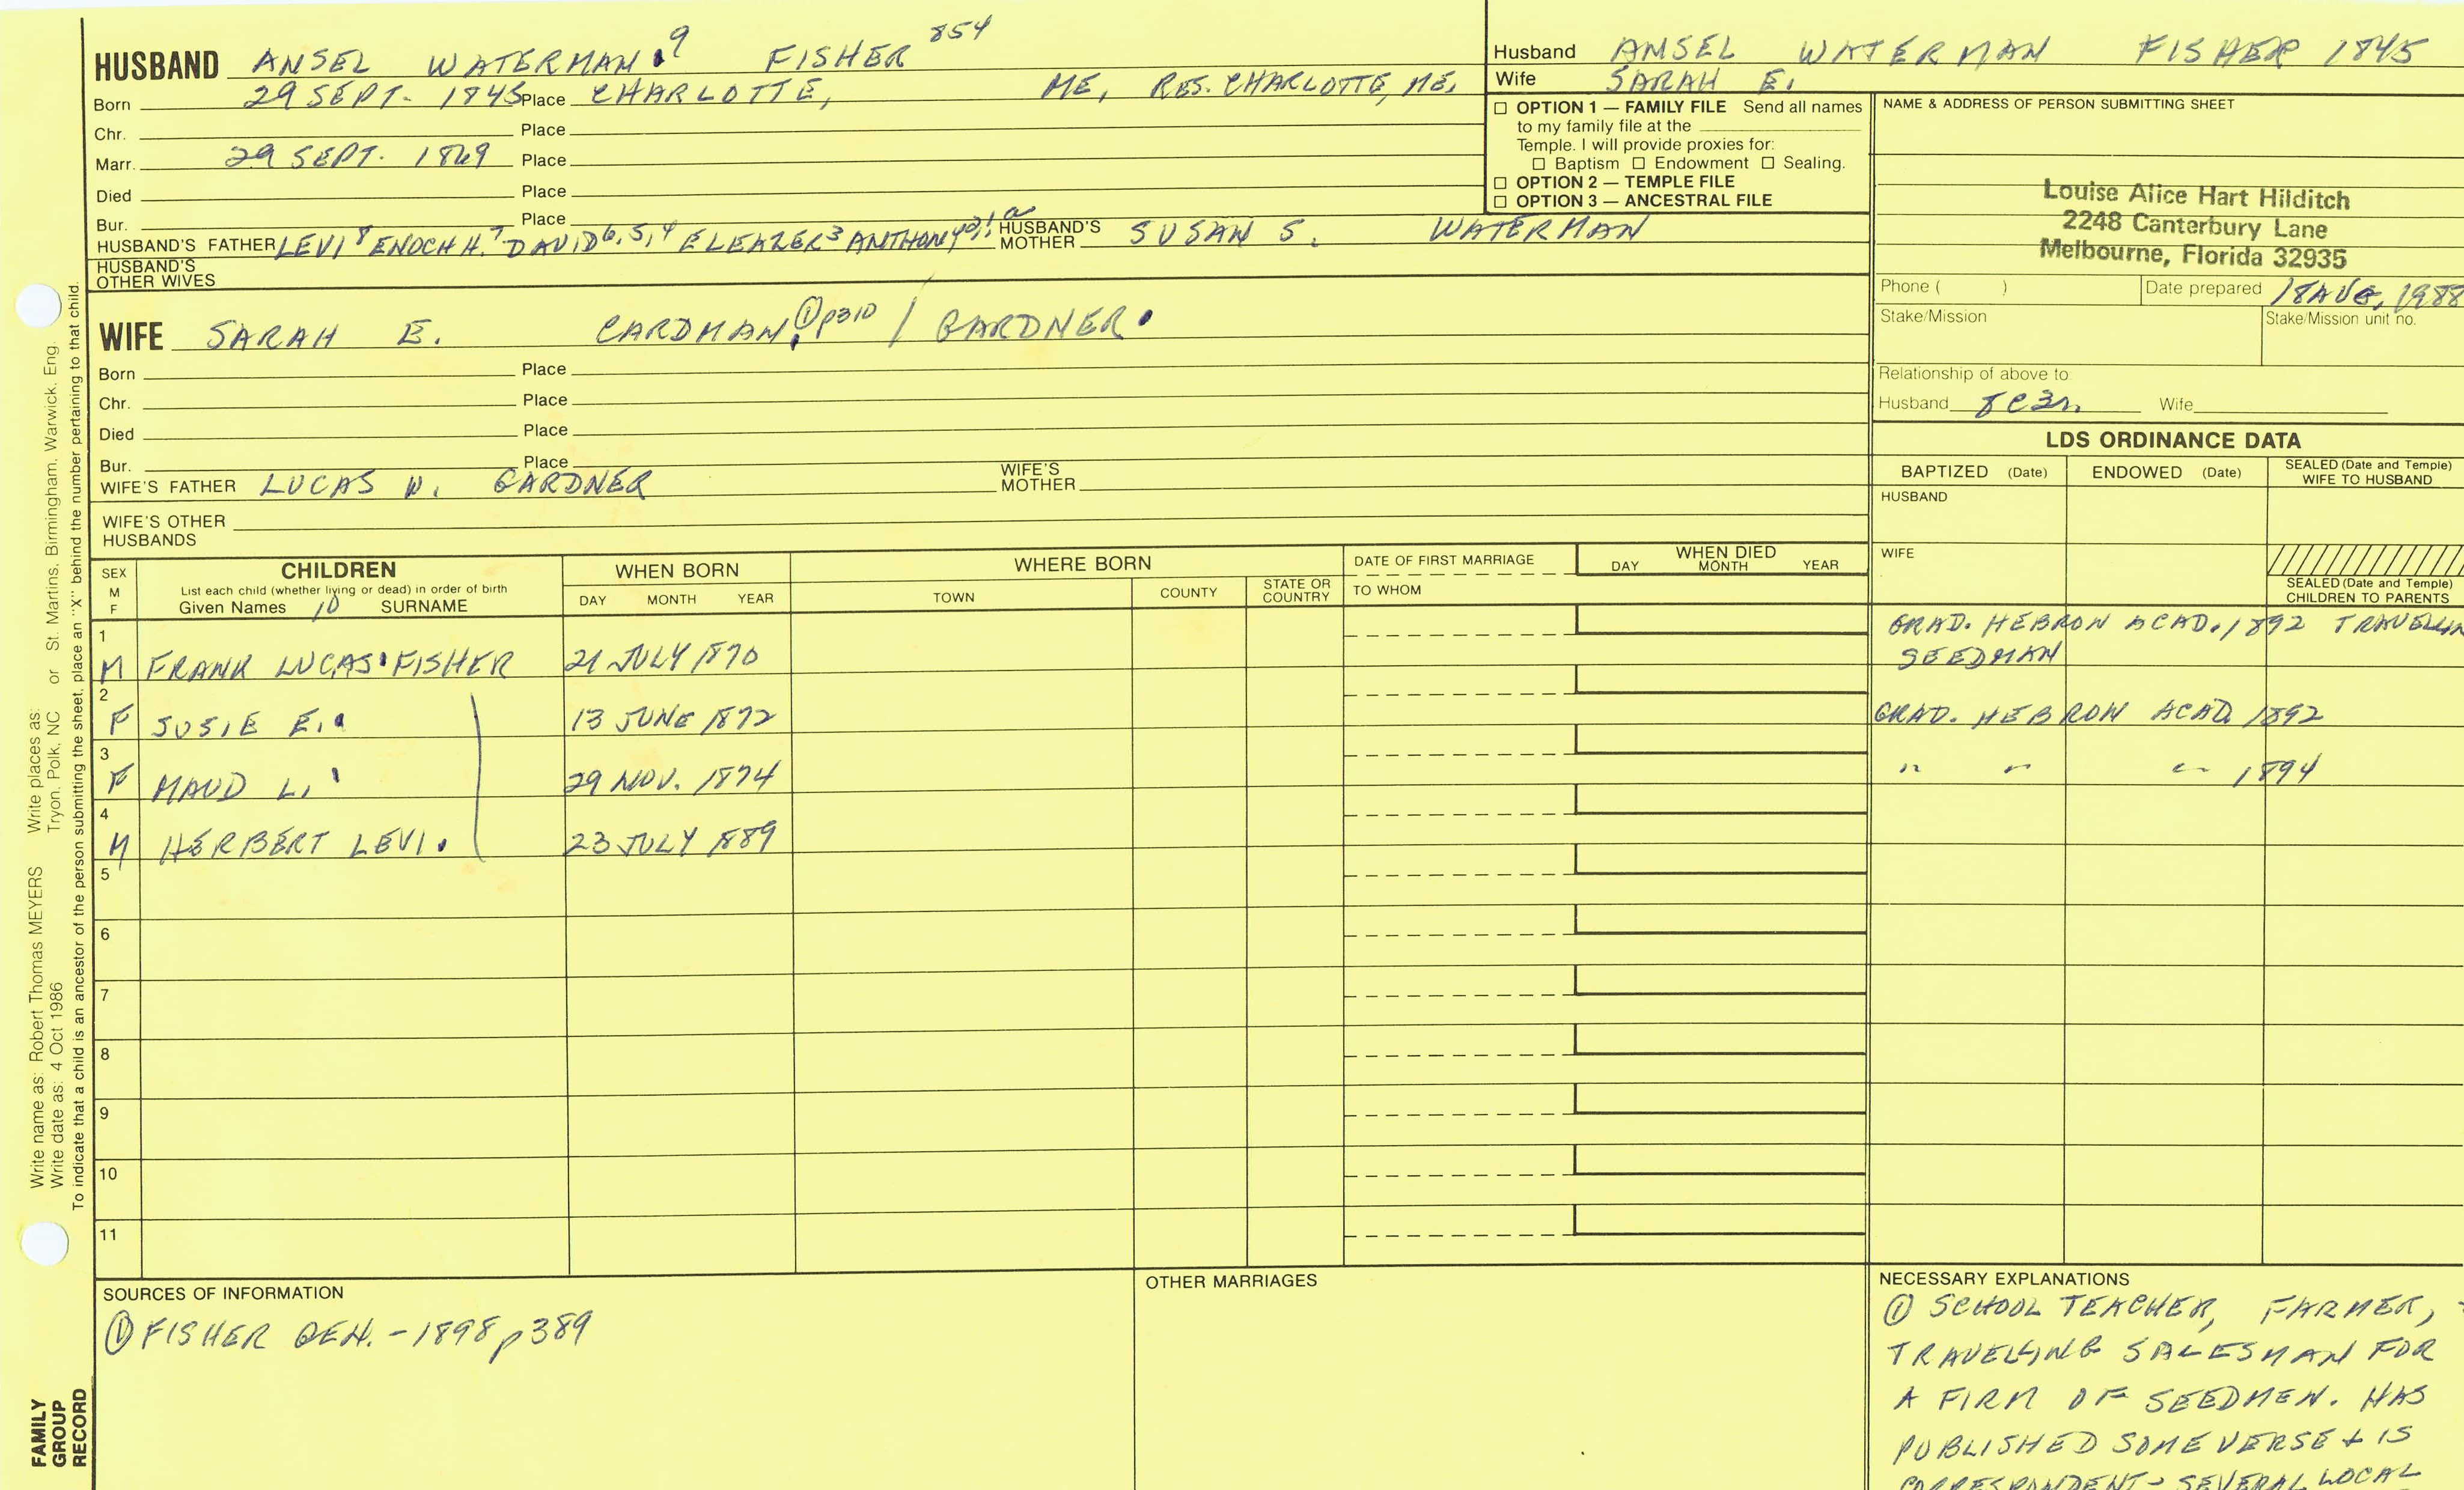 HUSBAND ANSEL WATERMAN 9 FISHER 854
Born 29 SEPT. 1845 Place CHARLOTTE, ME, RES. CHARLOTTE, ME.
Chr. Place
Marr. 29 SEPT. 1869 Place
Died Place
Bur. Place
HUSBAND'S FATHER LEVI 8 ENOCH H. 7 DAVID 6, 5, 4 ELEAZER 3 ANTHONY 2, 1 HUSBAND'S MOTHER SUSAN S. WATERMAN
HUSBAND'S
OTHER WIVES
WIFE SARAH E. CARDMAN ① p310 / GARDNER
Born Place
Chr. Place
Died Place
Bur. Place
WIFE'S FATHER LUCAS W. GARDNER WIFE'S MOTHER
WIFE'S OTHER
HUSBANDS
Husband ANSEL WATERMAN FISHER 1845
Wife SARAH E.
☐ OPTION 1 — FAMILY FILE Send all names
to my family file at the
Temple. I will provide proxies for:
☐ Baptism ☐ Endowment ☐ Sealing.
☐ OPTION 2 — TEMPLE FILE
☐ OPTION 3 — ANCESTRAL FILE
NAME & ADDRESS OF PERSON SUBMITTING SHEET
Louise Alice Hart Hilditch
2248 Canterbury Lane
Melbourne, Florida 32935
Phone ( ) Date prepared 18 AUG, 1988
Stake/Mission Stake/Mission unit no.
Relationship of above to:
Husband 8C3R Wife
LDS ORDINANCE DATA
BAPTIZED (Date) ENDOWED (Date) SEALED (Date and Temple) WIFE TO HUSBAND
HUSBAND
WIFE
SEALED (Date and Temple)
CHILDREN TO PARENTS
SEX M F
CHILDREN
List each child (whether living or dead) in order of birth
Given Names 10 SURNAME
WHEN BORN
DAY MONTH YEAR
WHERE BORN
TOWN COUNTY STATE OR COUNTRY
DATE OF FIRST MARRIAGE
TO WHOM
WHEN DIED
DAY MONTH YEAR
1
M FRANK LUCAS FISHER 21 JULY 1870 GRAD. HEBRON ACAD. 1892 TRAVELLIN
SEEDMAN
2
F SUSIE E. 13 JUNE 1872 GRAD. HEBRON ACAD. 1892
3
F MAUD L. 29 NOV. 1874 " " " 1894
4
M HERBERT LEVI 23 JULY 1889
5
6
7
8
9
10
11
SOURCES OF INFORMATION
① FISHER GEN. - 1898 p389
OTHER MARRIAGES
NECESSARY EXPLANATIONS
① SCHOOL TEACHER, FARMER,
TRAVELLING SALESMAN FOR
A FIRM OF SEEDMEN. HAS
PUBLISHED SOME VERSE + IS
CORRESPONDENT - SEVERAL LOCAL
Write name as: Robert Thomas MEYERS Write places as:
Write date as: 4 Oct 1986 Tryon, Polk, NC or St. Martins, Birmingham, Warwick, Eng.
To indicate that a child is an ancestor of the person submitting the sheet, place an "X" behind the number pertaining to that child.
FAMILY
GROUP
RECORD